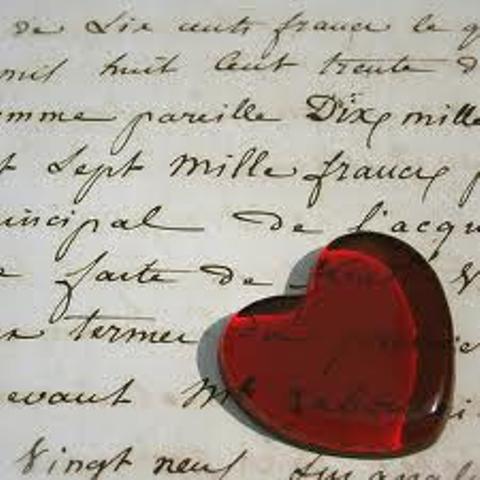 de Six cents francs le q
mil huit Cent trente d
omme pareille Dix mille
t Sept mille francs p
incipal de l'acqu
faite de
termes
evant Me
Vingt neuf